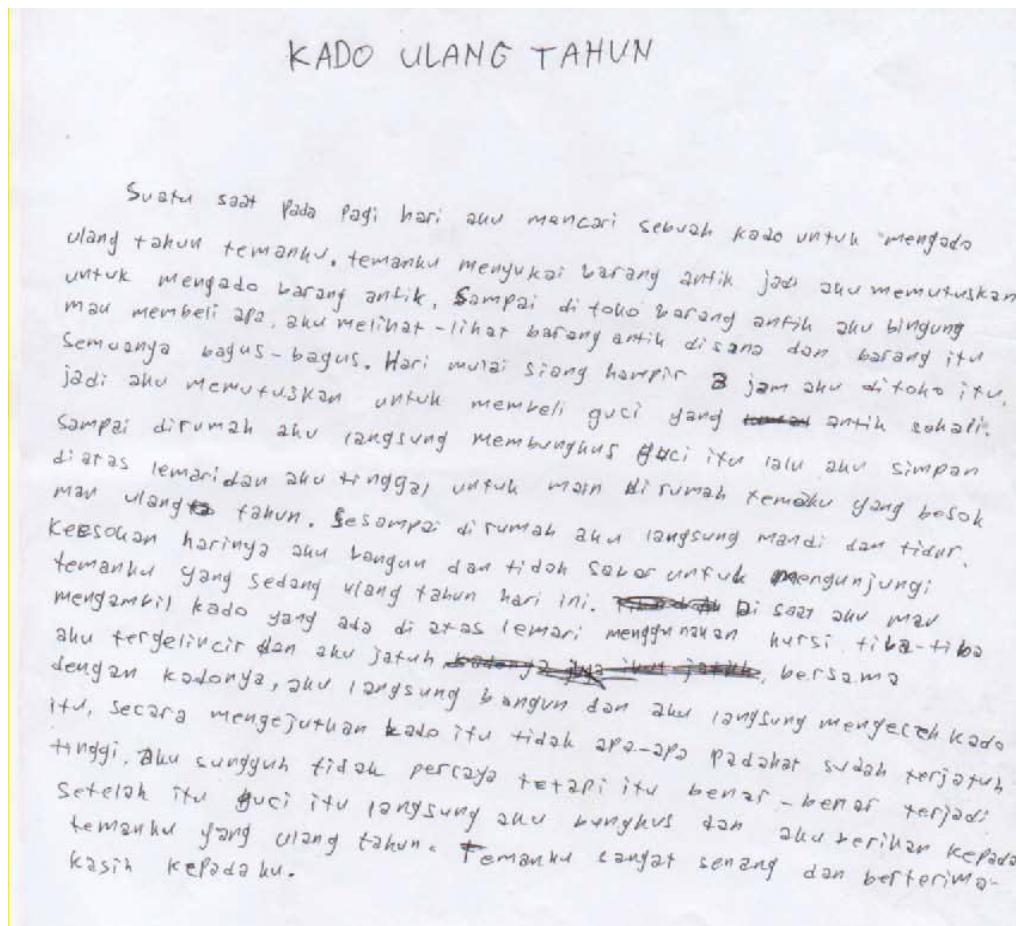 KADO ULANG TAHUN
Suatu saat pada pagi hari aku mencari sebuah kado untuk mengado
ulang tahun temanku. temanku menyukai barang antik jadi aku memutuskan
untuk mengado barang antik. Sampai di toko barang antik aku bingung
mau membeli apa, aku melihat-lihat barang antik disana dan barang itu
semuanya bagus-bagus. Hari mulai siang hampir 3 jam aku ditoko itu.
jadi aku memutuskan untuk membeli guci yang antik sekali.
Sampai dirumah aku langsung membungkus guci itu lalu aku simpan
diatas lemari dan aku tinggal untuk main di rumah temaku yang besok
mau ulang tahun. Sesampai dirumah aku langsung mandi dan tidur.
Keesokan harinya aku bangun dan tidak sabar untuk mengunjungi
temanku yang sedang ulang tahun hari ini. Di saat aku mau
mengambil kado yang ada di atas lemari menggunakan kursi tiba-tiba
aku tergelincir dan aku jatuh bersama
dengan kadonya, aku langsung bangun dan aku langsung mengecek kado
itu, secara mengejutkan kado itu tidak apa-apa padahal sudah terjatuh
tinggi. Aku sungguh tidak percaya tetapi itu benar-benar terjadi
setelah itu guci itu langsung aku bungkus dan aku berikan kepada
temanku yang ulang tahun. Temanku sangat senang dan berterima-
kasih kepadaku.